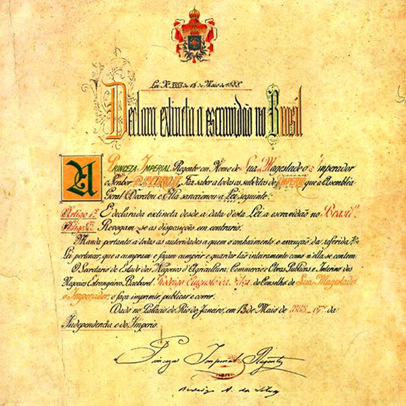 Lei Nº 3353 de 13 de Maio de 1888.
Declara extincta a escravidão no Brasil
A PRINCEZA IMPERIAL Regente em Nome de Sua Magestade o Imperador
o Senhor D. PEDRO II Faz saber a todos os subditos do IMPERIO que a Assembléa
Geral Decretou e Ella sanccionou a Lei seguinte:
Artigo 1º: É declarada extincta desde a data d'esta Lei a escravidão no Brasil.
Artigo 2º: Revogam-se as disposições em contrario.
Manda portanto a todas as autoridades a quem o conhecimento e execução da referida
Lei pertencer, que a cumpram e façam cumprir e guardar tão inteiramente como n'ella se contem.
O Secretario de Estado dos Negocios d'Agricultura, Commercio e Obras Publicas e Interino dos
Negocios Estrangeiros, Bacharel Rodrigo Augusto da Silva, do Conselho de Sua Magestade
o Imperador, o faça imprimir, publicar e correr.
Dado no Palacio do Rio de Janeiro, em 13 de Maio de 1888, 67º da
Independencia e do Imperio.
Princeza Imperial Regente
Rodrigo A. da Silva